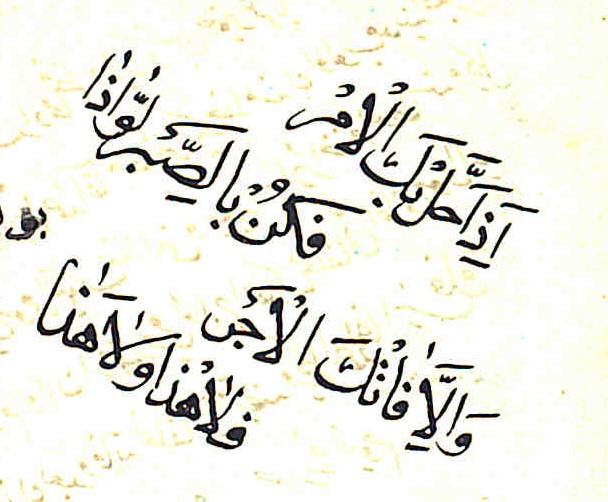 اذا حل بك الامر
فكن بالصبر لواذا
والا فاتك الاجر
فلا هذا ولا هذا